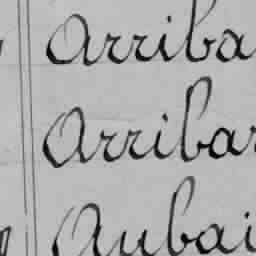 Arriba
Arribar
Aubai